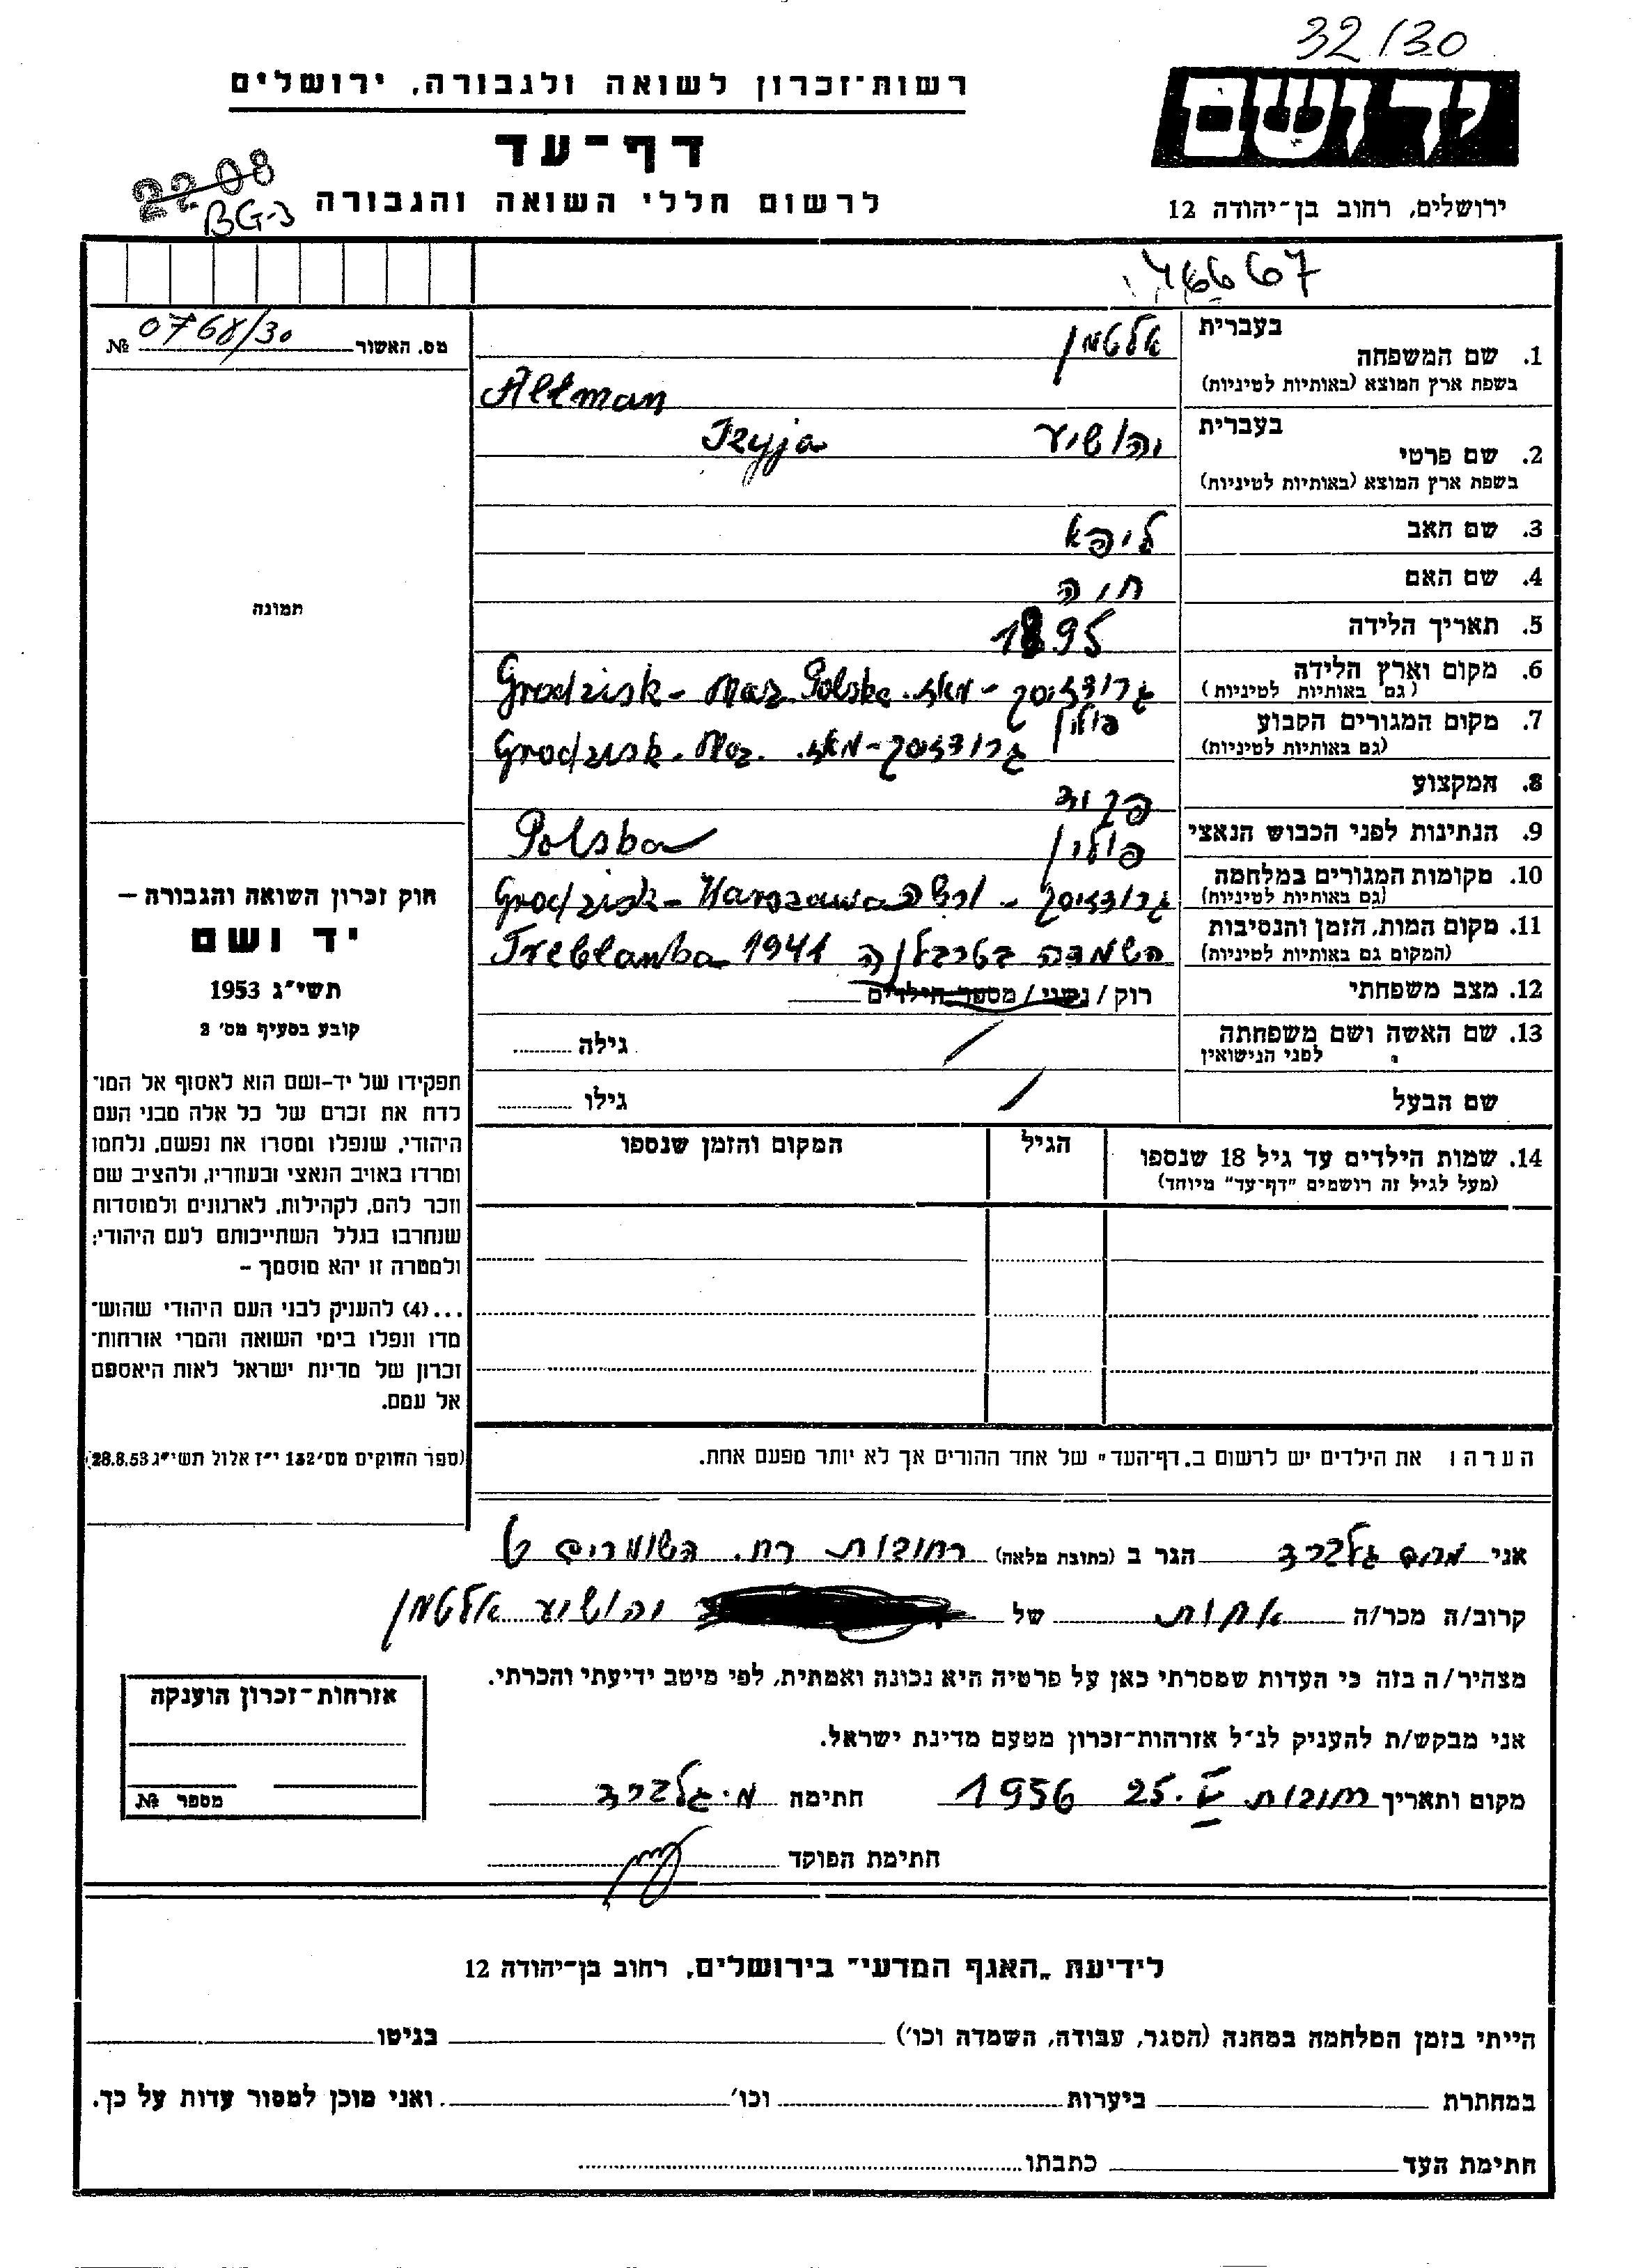 32/30
רשות־זכרון לשואה ולגבורה, ירושלים
יד ושם
דף־עד
לרשום חללי השואה והגבורה
ירושלים, רחוב בן־יהודה 12
2208
BG-3
46667
מס. האשור № 0768/30
בעברית אלטמן
1. שם המשפחה
בשפת ארץ המוצא (באותיות לטיניות) Altman
בעברית יהושיע Izyja
2. שם פרטי
בשפת ארץ המוצא (באותיות לטיניות)
3. שם האב ליפא
4. שם האם חוה
5. תאריך הלידה 1895
6. מקום וארץ הלידה גרודזיסק-מאז. Grodzisk-Maz. Polska
(גם באותיות לטיניות) פולין
7. מקום המגורים הקבוע גרודזיסק-מאז. Grodzisk-Maz.
(גם באותיות לטיניות)
8. המקצוע פקיד
9. הנתינות לפני הכבוש הנאצי פולין Polska
10. מקומות המגורים במלחמה גרודזיסק - ורשה Grodzisk-Warszawa
(גם באותיות לטיניות)
11. מקום המות, הזמן והנסיבות השמדה בטרבלנקה 1941 Treblanka
(המקום גם באותיות לטיניות)
12. מצב משפחתי רוק / נשוי / מספר הילדים
13. שם האשה ושם משפחתה גילה
לפני הנישואין
שם הבעל גילו
14. שמות הילדים עד גיל 18 שנספו הגיל המקום והזמן שנספו
(מעל לגיל זה רושמים "דף־עד" מיוחד)
תמונה
חוק זכרון השואה והגבורה –
יד ושם
תשי״ג 1953
קובע בסעיף מס׳ 2
תפקידו של יד-ושם הוא לאסוף אל המו־
לדת את זכרם של כל אלה מבני העם
היהודי, שנפלו ומסרו את נפשם, נלחמו
ומרדו באויב הנאצי ובעוזריו, ולהציב שם
וזכר להם, לקהילות, לארגונים ולמוסדות
שנחרבו בגלל השתייכותם לעם היהודי;
ולמטרה זו יהא מוסמך –
...(4) להעניק לבני העם היהודי שהוש־
מדו ונפלו בימי השואה והמרי אזרחות־
זכרון של מדינת ישראל לאות היאספם
אל עמם.
(ספר החוקים מס׳ 132 י״ז אלול תשי״ג 28.8.53)
הערה: את הילדים יש לרשום ב„דף־העד" של אחד ההורים אך לא יותר מפעם אחת.
אני מרים גלברד הגר ב (כתובת מלאה) רחובות רח. השומרים 6
קרוב/ה מכר/ה אחות של יהושיע אלטמן
מצהיר/ה בזה כי העדות שמסרתי כאן על פרטיה היא נכונה ואמתית, לפי מיטב ידיעתי והכרתי.
אני מבקש/ת להעניק לנ״ל אזרחות־זכרון מטעם מדינת ישראל.
מקום ותאריך רחובות 25.V 1956 חתימה מ. גלברד
חתימת הפוקד
אזרחות־זכרון הוענקה
מספר №
לידיעת „האגף המדעי" בירושלים, רחוב בן־יהודה 12
הייתי בזמן המלחמה במחנה (הסגר, עבודה, השמדה וכו׳) בגיטו
במחתרת ביערות וכו׳ ואני מוכן למסור עדות על כך.
חתימת העד כתבתו